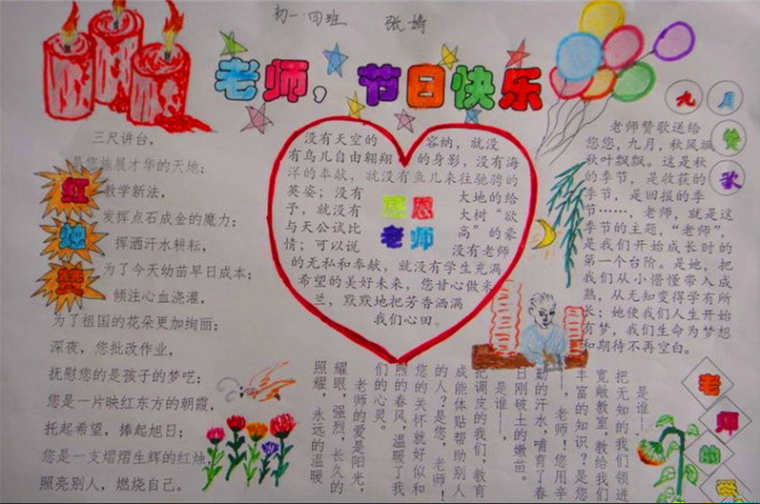 初一·四班 张婧
老师，节日快乐
九月赞歌
三尺讲台，
是您施展才华的天地；
教学新法，
发挥点石成金的魔力；
挥洒汗水耕耘，
为了今天幼苗早日成本；
倾注心血浇灌，
为了祖国的花朵更加绚丽；
深夜，您批改作业，
抚慰您的是孩子的梦呓；
您是一片映红东方的朝霞，
托起希望，捧起旭日；
您是一支熠熠生辉的红烛，
照亮别人，燃烧自己。
红烛赞
没有天空的容纳，就没
有鸟儿自由翱翔的身影，没有海
洋的奉献，就没有鱼儿来往驰骋的
英姿；没有大地的给
予，就没有大树“欲
与天公试比高”的豪
情；可以说没有老师
的无私和奉献，就没有学生充满
希望的美好未来，您甘心做米
兰，默默地把芳香洒满
我们心田。
感恩
老师
老师赞歌送给
您您，九月，秋风飒
秋叶飘飘。这是秋
的季节，是收获的
季节，是回报的季
节……，老师，就是这
季节的主题，“老师”，
是我们开始成长时的
第一个台阶。是她，把
我们从小懵懂带入成
熟，从无知变得学有所
长；她使我们人生开始
有梦，我们生命为梦想
和期待不再空白。
是谁——
把无知的我们领
宽敞教室，教给我们
丰富的知识？是您
，老师！您用辛
勤的汗水，哺育了春
日刚破土的嫩苗。
是谁——，
把调皮的我们，教育
成能体贴帮助别人
的人？是您，老师！
您的关怀就好似和
煦的春风，温暖了我
们的心灵。
老师的爱是阳光，
耀眼，强烈，长久的
照耀，永远的温暖
老师的爱